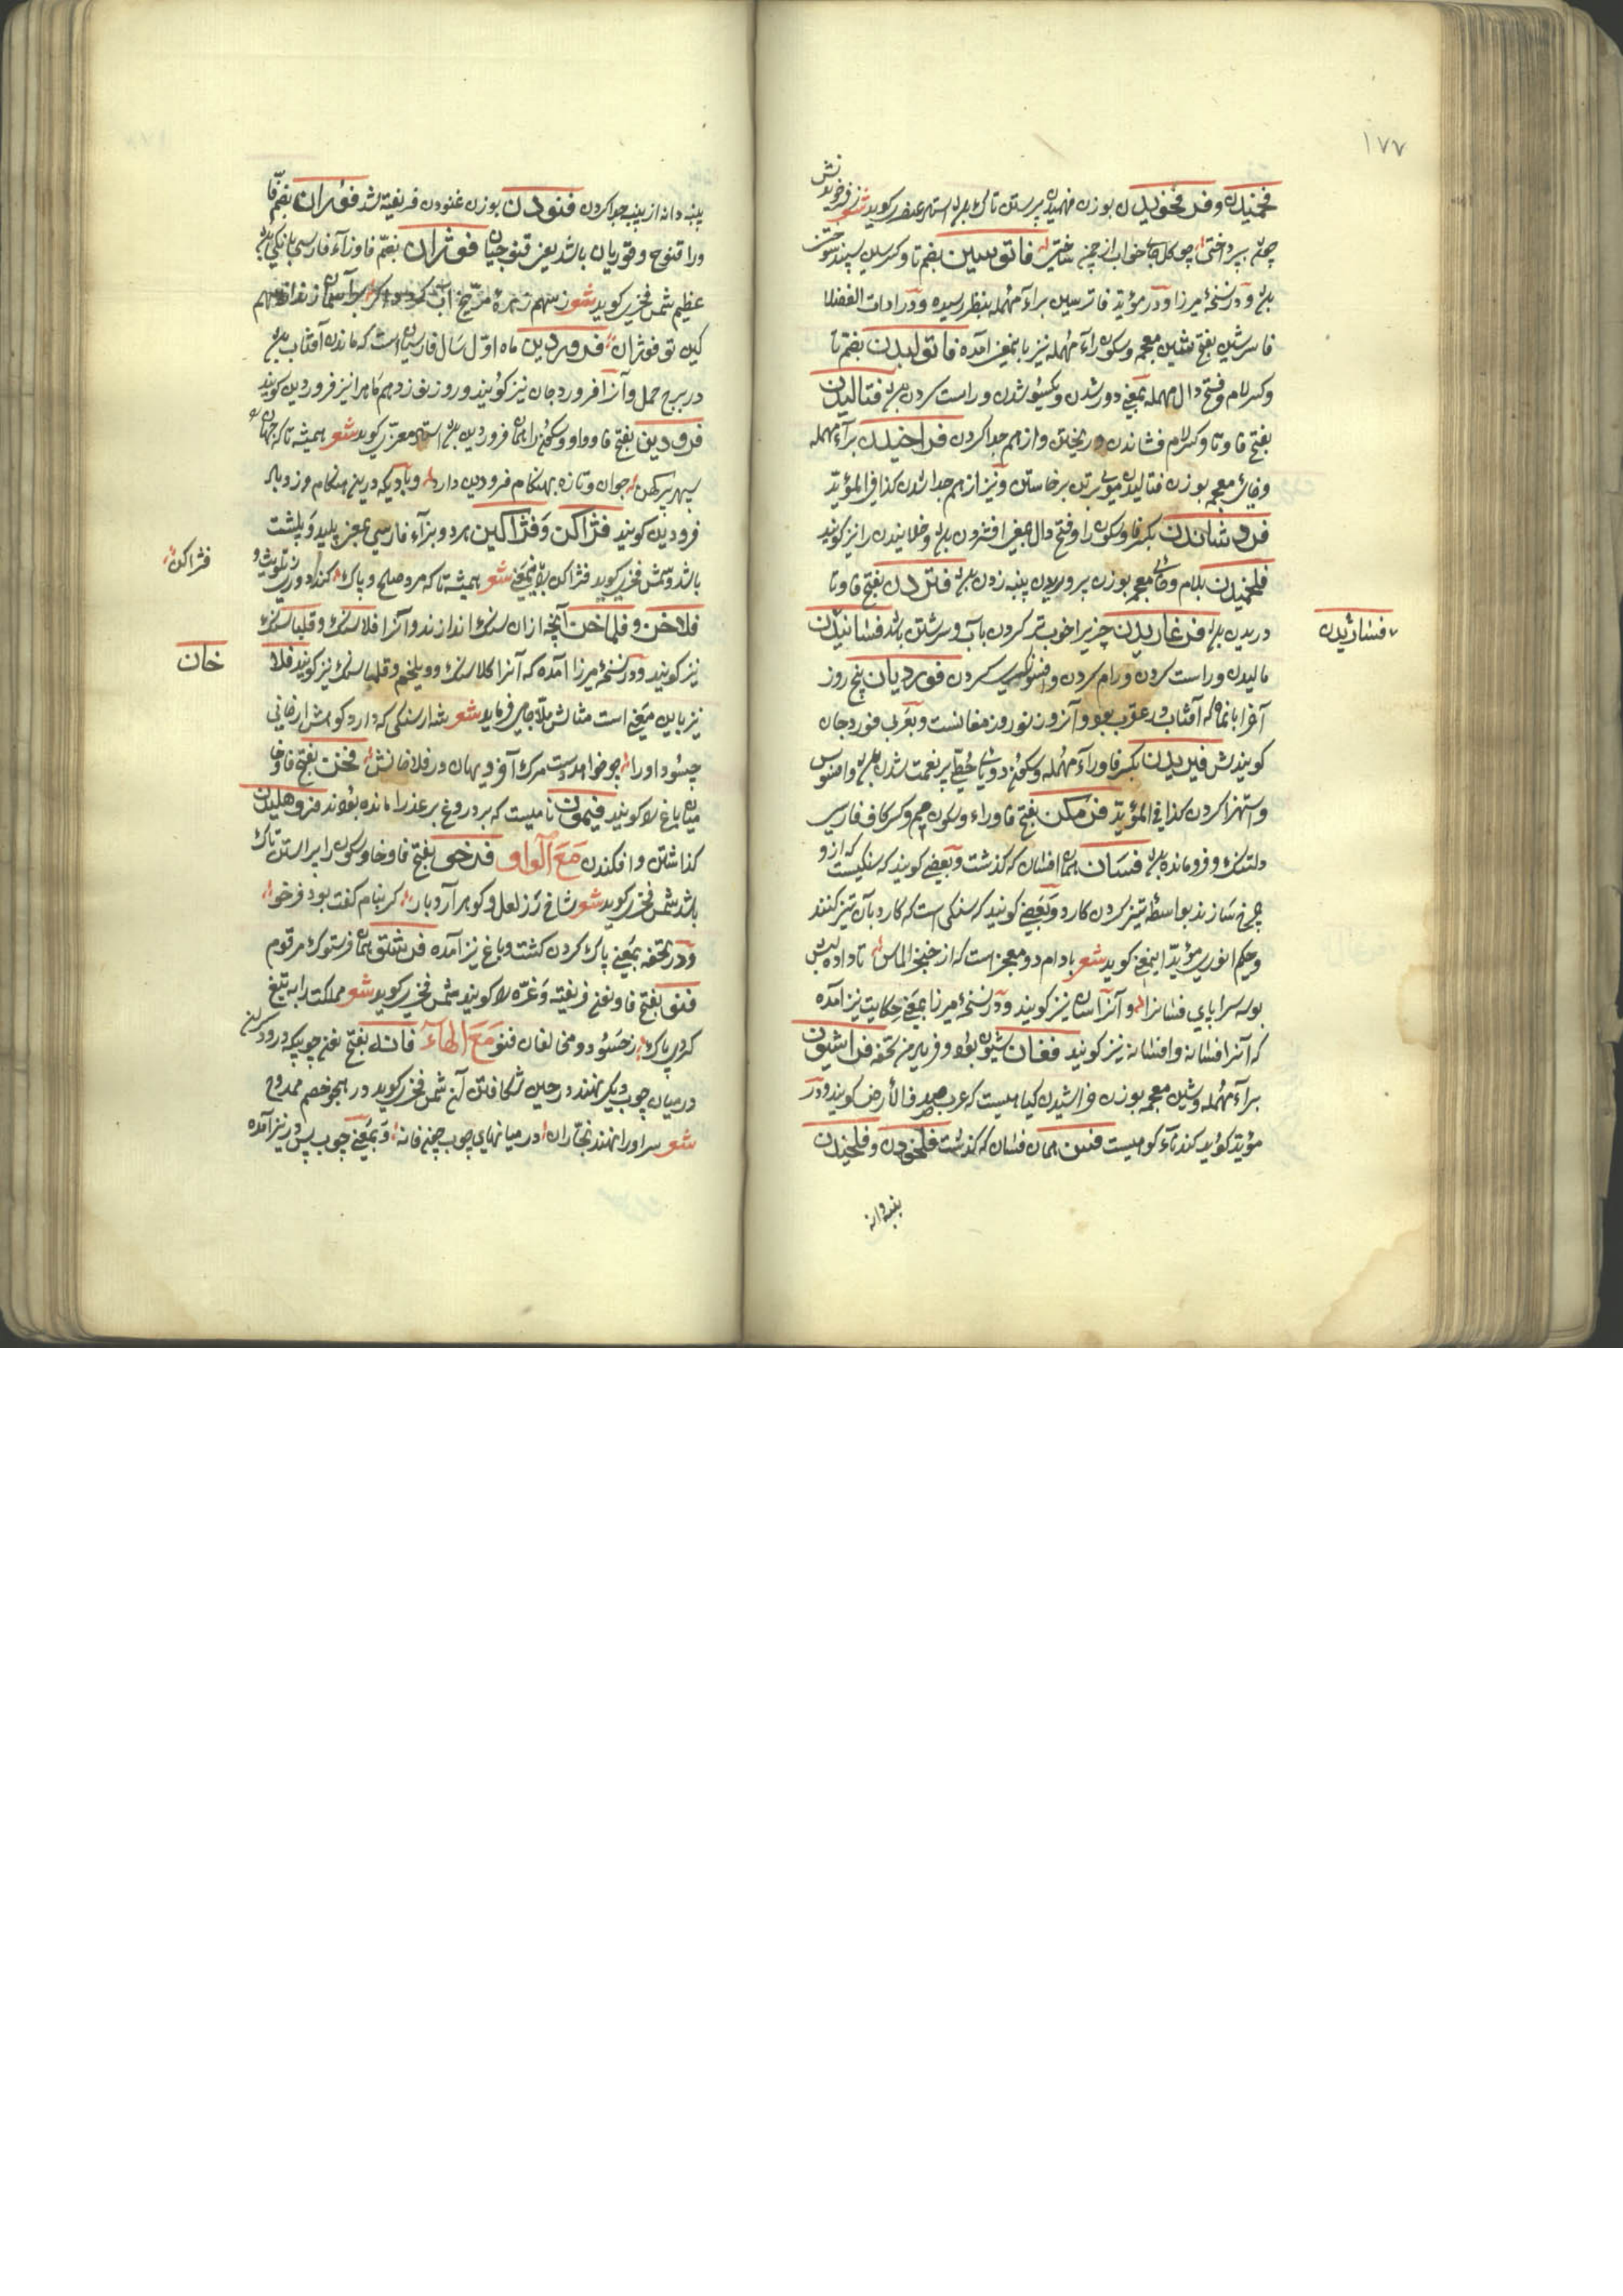 ١٧٧
فخمیدن و فرفخویدن بوزن فهمیدن پیراستن تاک استاد عنصری کوید شعر ز فرخویدنش
چمن بپرداختی چو کل جای خواب از چمن ساختی فاتوسین بضم تا وکسر سین سپند سوختن
بود و در نسخهٔ میرزا و در مؤید فاترسین براء مهمله بنظر رسیده و در ادات الفضلا
فاسرشین بفتح شین معجمه و سکون راء مهمله نیز باینمعنی آمده فاتولیدن بضم تا
وکسر لام وفتح دال مهمله بمعنی دور شدن و یکسو شدن و راست کردن بود فتالیدن
بفتح فا وتا وکسر لام فشاندن و ریختن و از هم جدا کردن فراخیدن براء مهمله
وخای معجمه بوزن فتالیدن موی بر تن برخاستن و نیز از هم جدا شدن کذا فی المؤید
فروشاندن بکسر فا وسکون را وفتح دال بمعنی افشردن بود و خلانیدن را نیز کویند
فلخمیدن بلام وخای معجمه بوزن پروریدن پنبه زدن بود فتردن بفتح فا وتا
دریدن بود فرغاریدن چیزیرا خوب تر کردن باب و سرشتن باشد فسانیدن
فساژیدن
مالیدن و راست کردن و رام کردن و افسونکری کردن فوردیان پنج روز
آخر آبانماه که آفتاب در عقرب بود و آنروز نوروز مغانست و بعربی فوردجان
کویندش فیریدن بکسر فا وراء مهمله وسکون دو یای حطی پر نعمت شدن بود و افسوس
و استهزا کردن کذا فی المؤید فرمکن بفتح فا وراء وسکون میم وکسر کاف فارسی
دلتنک و فرومانده بود فسان همان افسان که کذشت و بعضی کویند که سنکیست که از و
چرخ سازند بواسطهٔ تیز کردن کارد و بعضی کویند که سنکی است که کارد بآن تیز کنند
وحکیم انوری مؤید اینمعنی کوید شعر بادام دو مغز است که از خنجر الماس ناداده لبش
بوسه سراپای فسانرا و آنرا اسان نیز کویند و در نسخهٔ میرزا بمعنی حکایت نیز آمده
که آنرا افسانه و افسانه نیز کویند فغان شیون بود و فریاد من تحفه فراشیون
براء مهمله وشین معجمه بوزن فراشیدن کیاهیست که عرب صوف الارض کویند و در
مؤید کوید کندناء کوهیست فسن همان فسان که کذشت فلخودن و فلخیدن
پنبه دانه
پنبه دانه از پنبه جدا کردن فنودن بوزن غنودن فریفته شد فوران بضم فا
و را قنوج و قوریان باشد یعنی قنوجیان فوژان بضم فا وزاء فارسی بانکی بود
عظیم شمس فخری کوید شعر ز سهم زهرهٔ مریخ آب کردد اکر بر آسمان زند از سهم
کین تو فوژان فروردین ماه اول سال فارسیان است که ماندن آفتاب بود
در برج حمل و آنرا فروردجان نیز کویند و روز نوزدهم ماه را نیز فروردین کویند
فرودین بفتح فا و واو وسکون را همان فروردین بود استاد معزی کوید شعر همیشه تا که جهان
سپهر پیر کهن جوان و تازه بهنکام فرودین دارد و بادیکه درین هنکام وزد باد
فرودین کویند فژاکن و فژاکین هردو بزاء فارسی بمعنی پلید و پلشت
باشد و شمس فخری کوید فژاکن بدینمعنی شعر همیشه تا که مرد صلح و پاک کند دوری ز تلویث و
فژاکن
فلاخن و فلماخن آنچه از ان سنک اندازند و آنرا فلاسنک و قلباسنک
نیز کویند و در نسخهٔ میرزا آمده که آنرا کلاسنک و ویلخم و قلماسنک نیز کویند فلا
خان
نیز باین معنی است مثالش ملا جامی فرماید شعر شمار سنکی که دارد کوهش ارزانی
حسود او را چو خواهد دست مرک آفرد بهان در فلاخانش فخن بفتح فا وخا
میان باغ را کویند فیمون نامیست که بر دروغ بر عذرا مانده بودند فروهلیدن
کذاشتن و افکندن مع الواو فرخو بفتح فا وخا وسکون را پیراستن تاک
باشد شمس فخری کوید شعر شاخ رز لعل و کوهر آرد بار کر بنام کفت بود فرخو
و در تحفه بمعنی پاک کردن کشت و باغ نیز آمده فرشتو همان فرستوک مرقوم
فنو بفتح فا و نعنی فریفته و غره را کویند شمس فخری کوید شعر مملکت را به تیغ
کردی پاک ز حسود و مخالفان فنو مع الهاء فانه بفتح نعنی چوبیکه درودکران
در میان چوب دیکر نهند در حین شکافتن آن شمس فخری کوید در هجو خصم ممدوح
شعر سر او را نهند نجاران در میانهای چوب چون فانه و بمعنی چوب پس در نیز آمده